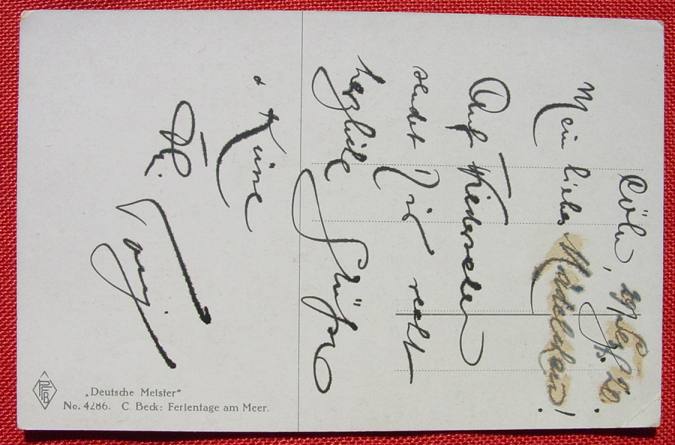 Cöln, 29. Sept. 20.
Mein liebes Mädelchen!
Auf Wiedersehen
sendet Dir recht
herzliche Grüße
u. Küsse
Dr.
Tony
"Deutsche Meister"
No. 4286. C Beck: Ferientage am Meer.